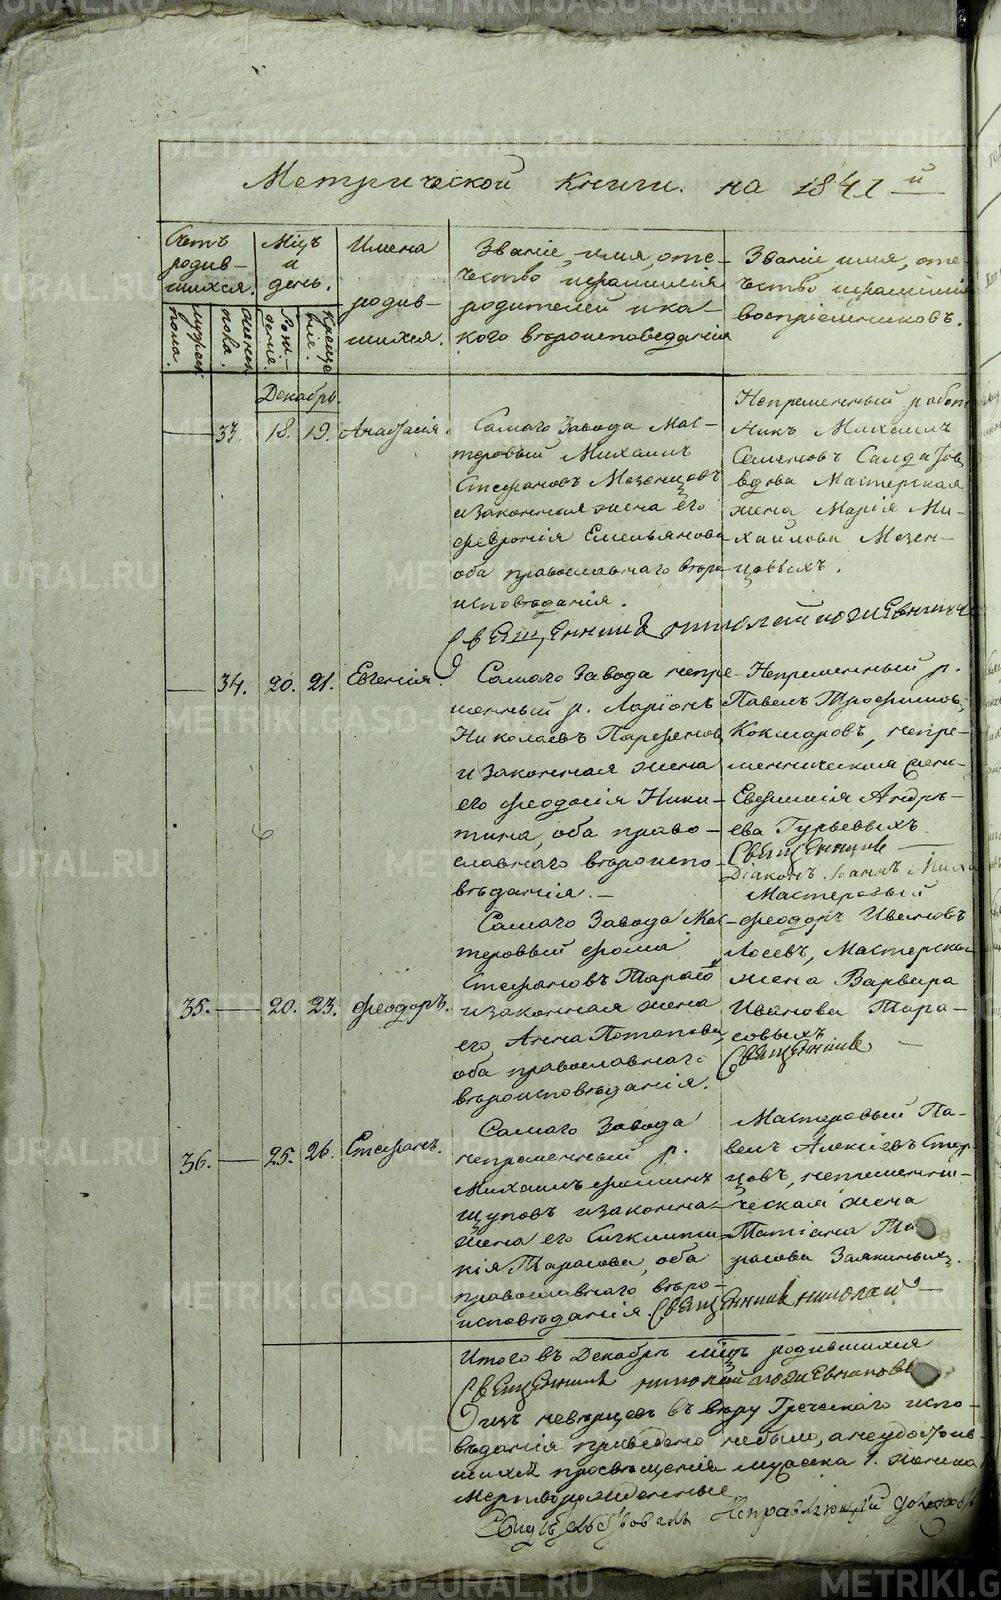 METRIKI.GASO-URAL.RU
Метрической книги на 1841 й
Счетъ родив-
шихся.
Мцъ
и
день.
Имена
родив-
шихся.
Званіе, имя, оте-
чество и фамилія
родителей и ка-
кого вѣроисповеданія
Званіе, имя, оте-
чество и фамилія
воспріемниковъ.
мужеск
пола.
женск
пола.
Рож-
деніе.
Креще
ніе.
Декабрь.
33. 18. 19. Анастасія.
Самаго Завода Мас-
теровый Михаилъ
Стефановъ Мезенцовъ
и законная жена его
Февронія Емельянова
оба православнаго вѣро-
исповѣданія.
Непременный работ
никъ Михаилъ
Семеновъ
вдова Мастерская
жена Марія Ми-
хайлова Мезен-
цовыхъ.
Священникъ Николай
34. 20. 21. Евгенія.
Самаго Завода непре-
менный р. Ларіонъ
Николаевъ Парфенов
и законная жена
его Феодосія Ники-
тина, оба право-
славнаго вѣроиспо-
вѣданія.—
Непременный р.
Павелъ Трофимов
Кокшаровъ, непре-
менническая
Евфимія Андрѣ-
ева Гурьевыхъ
Священникъ —
Діаконъ Іоаннъ
35. 20. 23. Феодоръ.
Самаго Завода Мас-
теровый Фома
Стефановъ Тарасо
и законная жена
его Анна Потапова,
оба православнаго
вѣроисповѣданія.
Мастеровый
Феодоръ Ивановъ
Лосевъ, Мастерска
жена Варвара
Иванова Тара-
совыхъ
Священникъ —
36. 25. 26. Стефанъ.
Самаго Завода
непременный р.
Михаилъ Фоминъ
Щуповъ и законна-
жена его Сигклити-
кія Тарасова, оба
православнаго вѣро-
исповѣданія.
Мастеровый Па-
велъ Алексіевъ
цовъ, непеменни-
ческая жена
Татіана Та
расова Заякиныхъ.
Священникъ Николай —
Итого въ Декабрѣ мцѣ родившихся
Священникъ Николай
изъ невѣрцевъ въ вѣру Греческаго испо-
вѣданія приведено небыло, а неудостоив-
шихся просвѣщенія мужеска 1. женска
Мертворожденные
Свидѣтельствовалъ Исправляющій должность